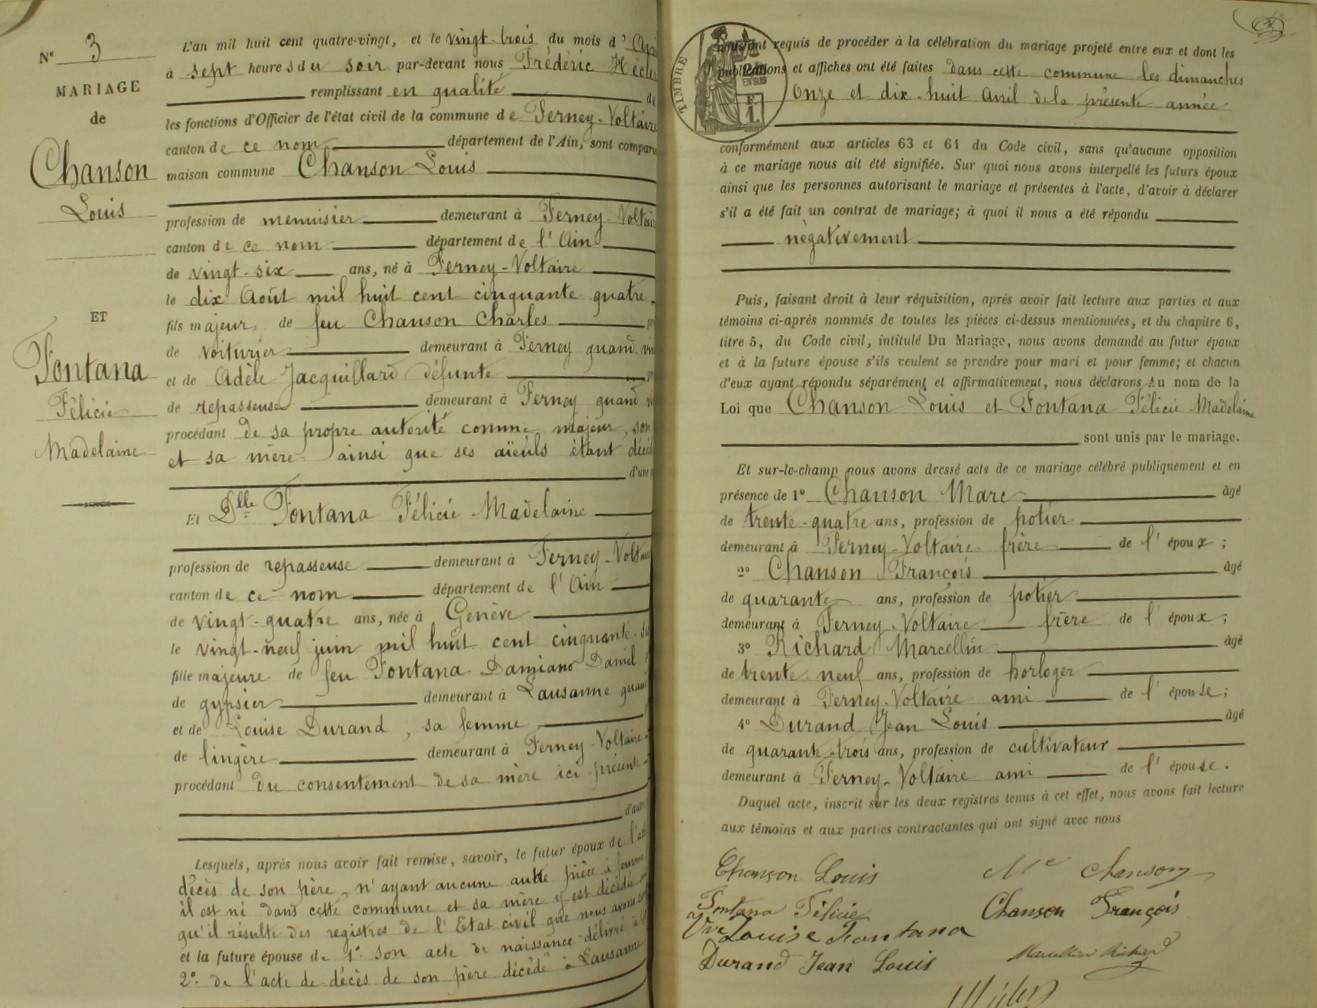 N° 3
MARIAGE
de
Chanson
Louis
ET
Fontana
Félicie
Madelaine
L'an mil huit cent quatre-vingt, et le vingt-trois du mois d'
à sept heures du soir par-devant nous Frédéric
remplissant en qualité de
les fonctions d'Officier de l'état civil de la commune de Ferney-Voltaire
canton de ce nom département de l'Ain, sont comparu
maison commune Chanson Louis
profession de menuisier demeurant à Ferney Voltaire
canton de ce nom département de l'Ain
de vingt-six ans, né à Ferney-Voltaire
le dix Août mil huit cent cinquante quatre
fils majeur de feu Chanson Charles
de voiturier demeurant à Ferney quand
et de Adèle Jacquillard défunte
de repasseuse demeurant à Ferney quand
procédant de sa propre autorité comme majeur, son
et sa mère ainsi que ses aïeuls étant
d'une
Et Dlle Fontana Félicie Madelaine
profession de repasseuse demeurant à Ferney-Volt
canton de ce nom département de l'Ain
de vingt-quatre ans, née à Genève
le vingt-neuf juin mil huit cent cinquante
fille majeure de feu Fontana Damiano Daniel
de gypsier demeurant à Lausanne quand
et de Louise Durand, sa femme
de lingère demeurant à Ferney-Voltaire
procédant du consentement de sa mère ici présente
d'autre
Lesquels, après nous avoir fait remise, savoir, le futur époux de l'
décès de son père, n'ayant aucune autre pièce à
il est né dans cette commune et sa mère y est décédée
qu'il résulte des registres de l'Etat civil que nous avons
et la future épouse de 1° son acte de naissance délivré à
2° de l'acte de décès de son père décédé à Lausanne
TIMBRE
requis de procéder à la célébration du mariage projeté entre eux et dont les
publications et affiches ont été faites dans cette commune les dimanches
Onze et dix-huit Avril de la présente année
conformément aux articles 63 et 64 du Code civil, sans qu'aucune opposition
à ce mariage nous ait été signifiée. Sur quoi nous avons interpellé les futurs époux
ainsi que les personnes autorisant le mariage et présentes à l'acte, d'avoir à déclarer
s'il a été fait un contrat de mariage; à quoi il nous a été répondu
négativement
Puis, faisant droit à leur réquisition, après avoir fait lecture aux parties et aux
témoins ci-après nommés de toutes les pièces ci-dessus mentionnées, et du chapitre 6,
titre 5, du Code civil, intitulé Du Mariage, nous avons demandé au futur époux
et à la future épouse s'ils veulent se prendre pour mari et pour femme; et chacun
d'eux ayant répondu séparément et affirmativement, nous déclarons au nom de la
Loi que Chanson Louis et Fontana Félicie Madelaine
sont unis par le mariage.
Et sur-le-champ nous avons dressé acte de ce mariage célébré publiquement et en
présence de 1° Chanson Marc âgé
de trente-quatre ans, profession de potier
demeurant à Ferney-Voltaire frère de l'époux;
2° Chanson François âgé
de quarante ans, profession de potier
demeurant à Ferney-Voltaire frère de l'époux;
3° Richard Marcellin âgé
de trente neuf ans, profession de horloger
demeurant à Ferney-Voltaire ami de l'épouse;
4° Durand Jean Louis âgé
de quarante-trois ans, profession de cultivateur
demeurant à Ferney-Voltaire ami de l'épouse.
Duquel acte, inscrit sur les deux registres tenus à cet effet, nous avons fait lecture
aux témoins et aux parties contractantes qui ont signé avec nous
Chanson Louis Mc Chanson
Fontana Félicie Chanson François
Vve Louise Fontana
Durand Jean Louis Marcellin Richard